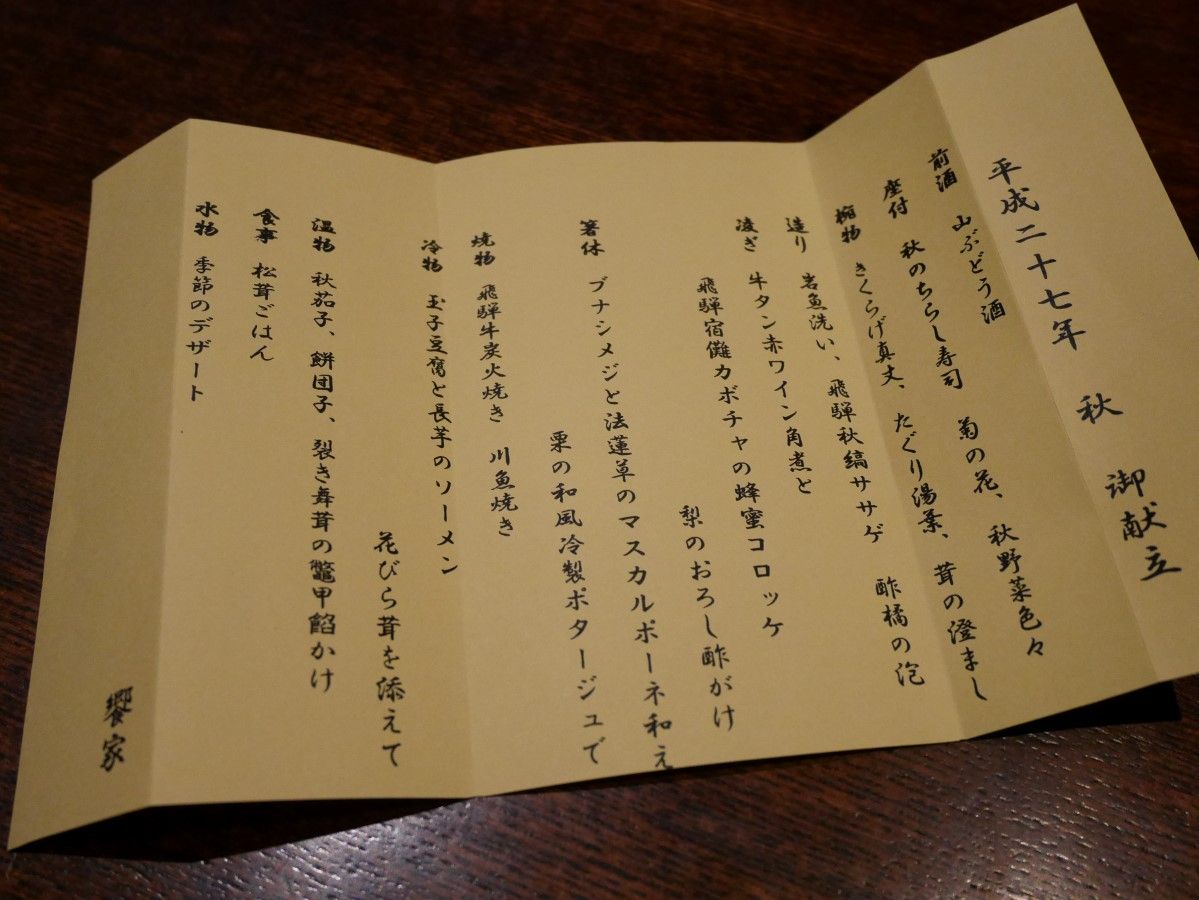 平成二十七年 秋 御献立
前酒 山ぶどう酒
座付 秋のちらし寿司 菊の花、秋野菜色々
椀物 きくらげ真丈、たぐり湯葉、茸の澄まし
造り 岩魚洗い、飛騨秋縞ササゲ 酢橘の泡
凌ぎ 牛タン赤ワイン角煮と
飛騨宿儺カボチャの蜂蜜コロッケ
梨のおろし酢がけ
箸休 ブナシメジと法蓮草のマスカルポーネ和え
栗の和風冷製ポタージュで
焼物 飛騨牛炭火焼き 川魚焼き
冷物 玉子豆腐と長芋のソーメン
花びら茸を添えて
温物 秋茄子、餅団子、裂き舞茸の鼈甲餡かけ
食事 松茸ごはん
水物 季節のデザート
饗家